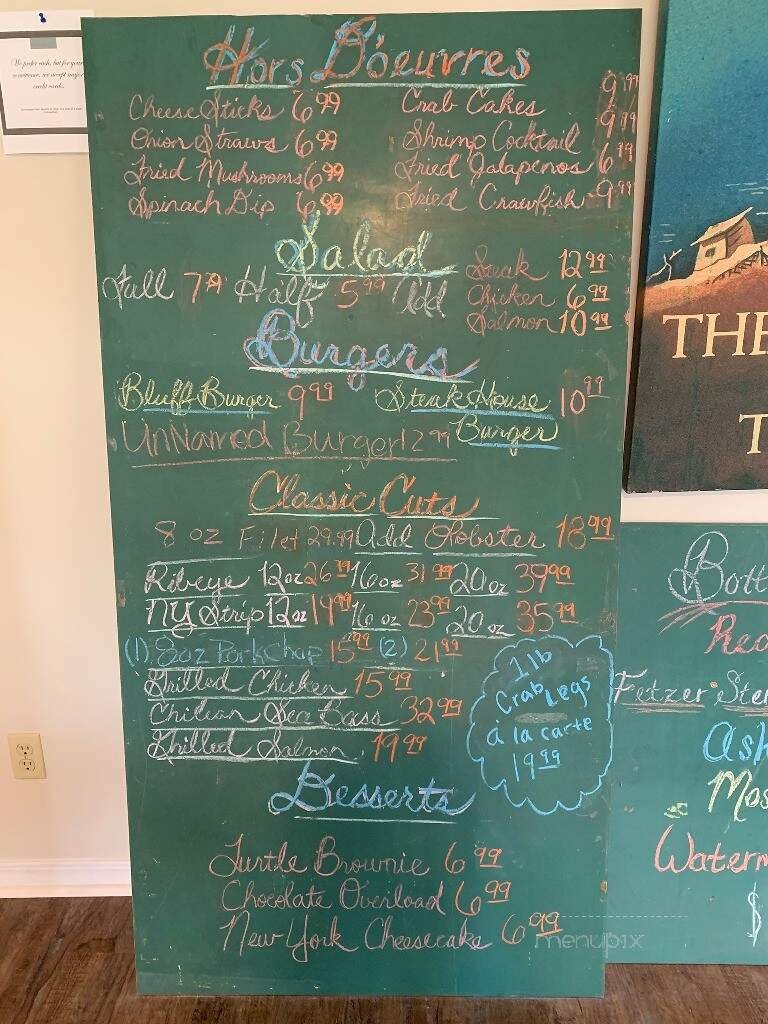 We prefer cash, but for your
convenience, we accept major
credit cards.
Hors D'oeuvres
Cheese Sticks 6.99 Crab Cakes 9.99
Onion Straws 6.99 Shrimp Cocktail 9.99
Fried Mushrooms 6.99 Fried Jalapenos 6.99
Spinach Dip 6.99 Fried Crawfish 9.99
Salad
Full 7.99 Half 5.99 Add Steak 12.99
Chicken 6.99
Salmon 10.99
Burgers
Bluff Burger 9.99 Steak House Burger 10.99
UnNamed Burger 12.99
Classic Cuts
8 oz Filet 29.99 add Lobster 18.99
Ribeye 12oz 26.99 16oz 31.99 20oz 39.99
NY Strip 12oz 19.99 16oz 23.99 20oz 35.99
(1) 8oz Pork Chop 15.99 (2) 21.99
Grilled Chicken 15.99
Chilean Sea Bass 32.99
Grilled Salmon 19.99
1 lb
Crab Legs
à la carte
19.99
Desserts
Turtle Brownie 6.99
Chocolate Overload 6.99
New York Cheesecake 6.99
menupix
THE
T
Bott
Red
Fetzer Ste
Ash
Mos
Waterm
$